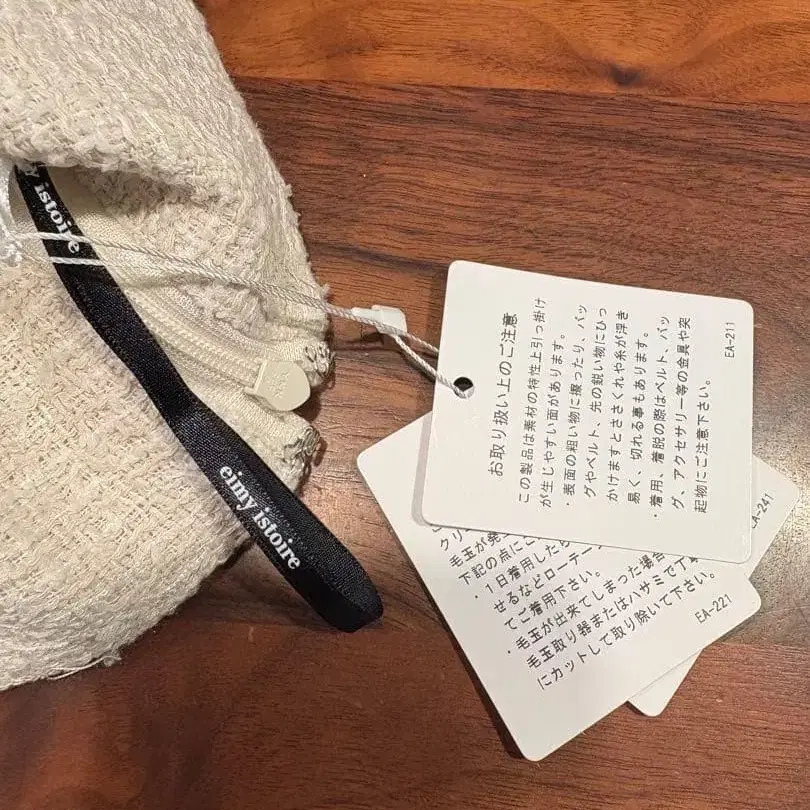 y istoire
eimy istoire
お取り扱い上のご注意
この製品は素材の特性上引っ掛け
が生じやすい面があります。
・表面の粗い物に擦ったり、バッ
グやベルト、先の鋭い物にひっ
かけますとささくれや糸が浮き
易く、切れる事もあります。
・着用、着脱の際はベルト、バッ
グ、アクセサリー等の金具や突
起物にご注意下さい。
EA-211
クリ
毛玉が発
下記の点にご
・1日着用したら
せるなどローテー
てご着用下さい。
・毛玉が出来てしまった場合
毛玉取り器またはハサミで丁
にカットして取り除いて下さい。
EA-221
EA-241